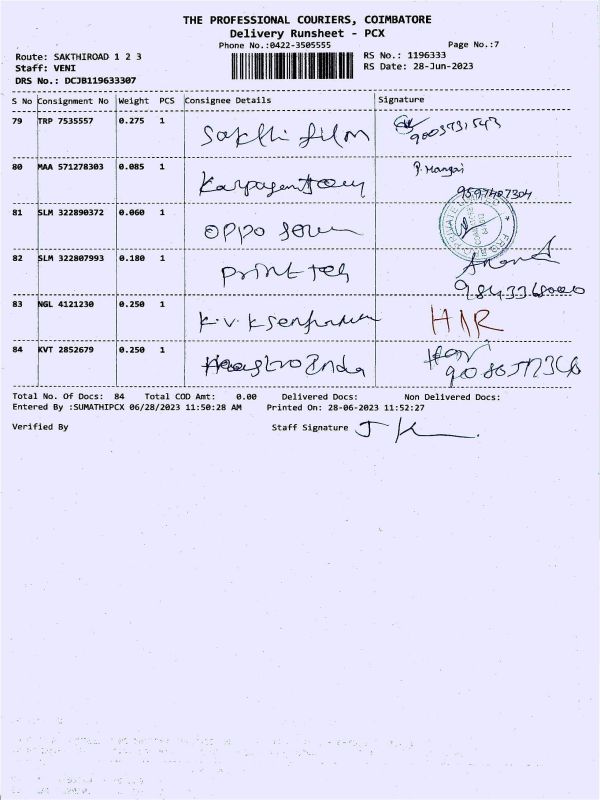 THE PROFESSIONAL COURIERS, COIMBATORE
Delivery Runsheet - PCX
Phone No.:0422-3505555 Page No.:7
Route: SAKTHIROAD 1 2 3 RS No.: 1196333
Staff: VENI RS Date: 28-Jun-2023
DRS No.: DCJB119633307
S No Consignment No Weight PCS Consignee Details Signature
79 TRP 7535557 0.275 1 Sakthi film
80 MAA 571278303 0.085 1 P. Mangai
9597487304
81 SLM 322890372 0.060 1 OPPO
82 SLM 322807993 0.180 1 Print Anand
9843368000
83 NGL 4121230 0.250 1 K.V.K
84 KVT 2852679 0.250 1 Hari
Total No. Of Docs: 84 Total COD Amt: 0.00 Delivered Docs: Non Delivered Docs:
Entered By :SUMATHIPCX 06/28/2023 11:50:28 AM Printed On: 28-06-2023 11:52:27
Verified By Staff Signature